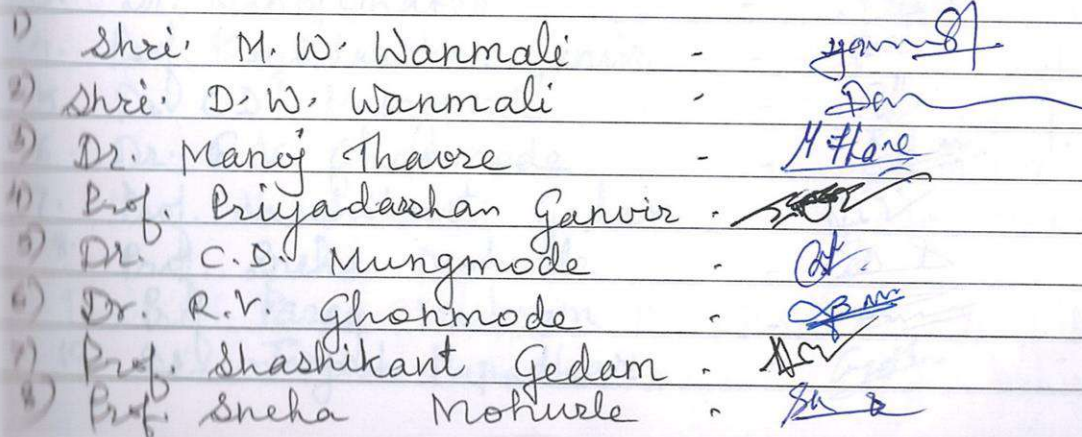 1) Shri. M. W. Wanmali -
2) Shri. D. W. Wanmali -
3) Dr. Manoj Thavre - M Thare
4) Prof. Priyadarshan Ganvir -
5) Dr. C.D. Mungmode -
6) Dr. R.V. Ghonmode -
7) Prof. Shashikant Gedam -
8) Prof. Sneha Mohurle -